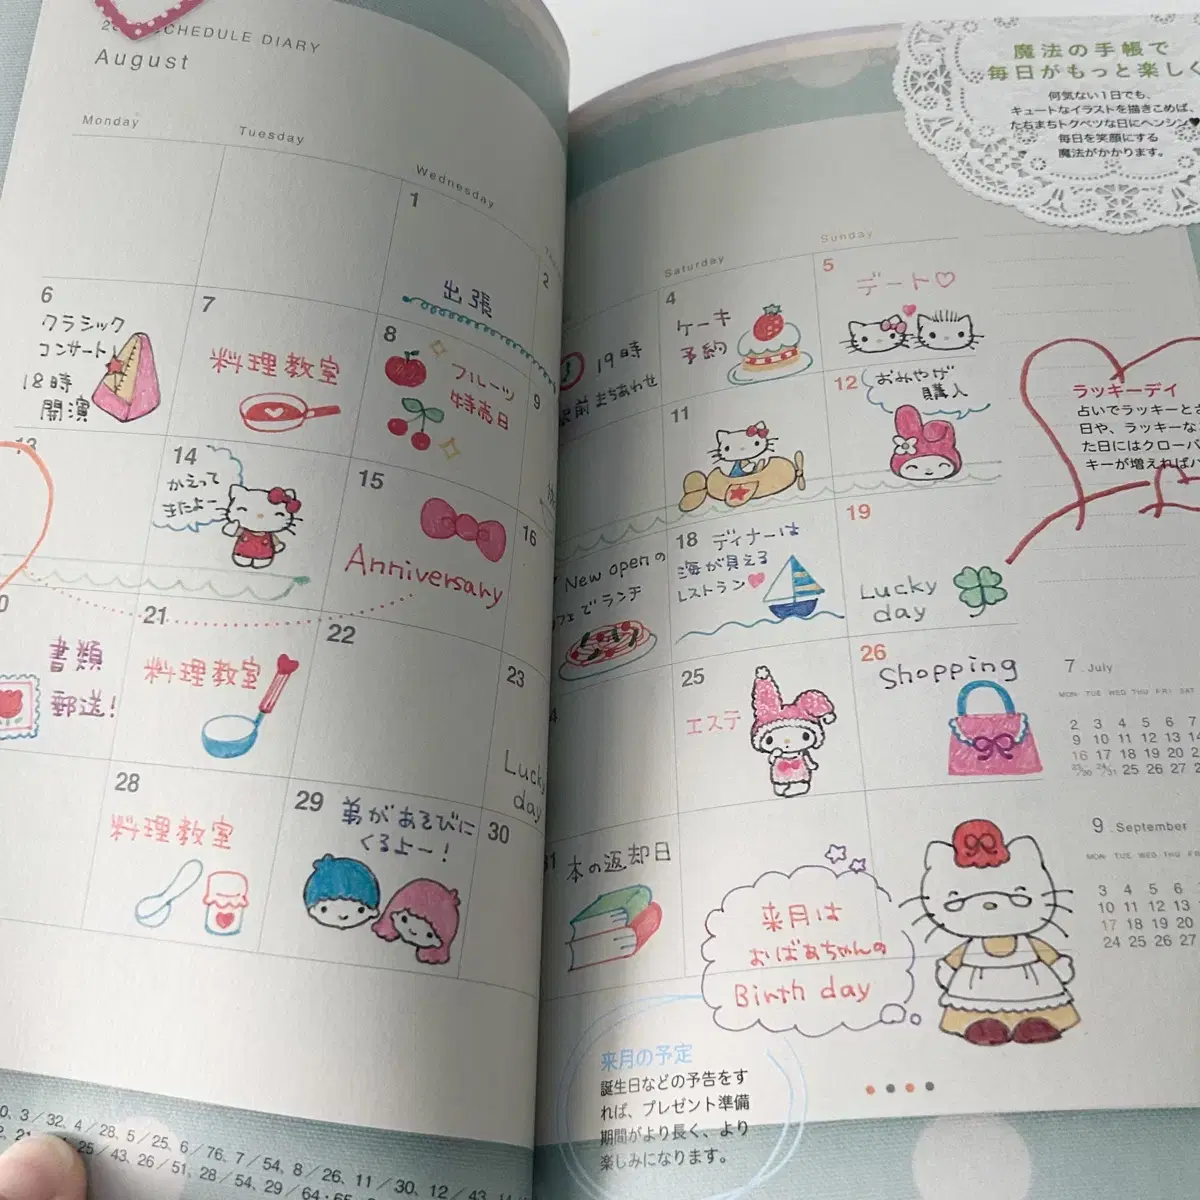 SCHEDULE DIARY
August
Monday
Tuesday
Wednesday
1
出張
2
6
クラシック
コンサート
18時
開演
7
料理教室
8
フルーツ
特売日
9
13
14
かえって
きたよー
15
Anniversary
16
書類
郵送!
21
料理教室
22
23
Lucky
day
28
料理教室
29
弟があそびに
くるよー!
30
魔法の手帳で
毎日がもっと楽しく
何気ない1日でも、
キュートなイラストを描きこめば、
たちまちトクベツな日にヘンシン♥
毎日を笑顔にする
魔法がかかります。
Saturday
Sunday
19時
駅前まちあわせ
4
ケーキ
予約
5
デート♡
11
12
おみやげ
購入
ラッキーデイ
占いでラッキーとさ
日や、ラッキーな
た日にはクローバ
キーが増えればハ
New openの
フェでランチ
18
ディナーは
海が見える
レストラン♥
19
Lucky
day
25
エステ
26
Shopping
31
本の返却日
来月は
おばあちゃんの
Birth day
来月の予定
誕生日などの予告をす
れば、プレゼント準備
期間がより長く、より
楽しみになります。
7 . July
MON TUE WED THU FRI SAT
2 3 4 5 6 7
9 10 11 12 13 14
16 17 18 19 20 2
23/30 24/31 25 26 27
9 . September
MON TUE WED THU FRI
3 4 5 6
10 11 12 13
17 18 19 20
24 25 26 27
0、3／32、4／28、5／25、6／76、7／54、8／26、11／30、12／43
25／43、26／51、28／54、29／64・65